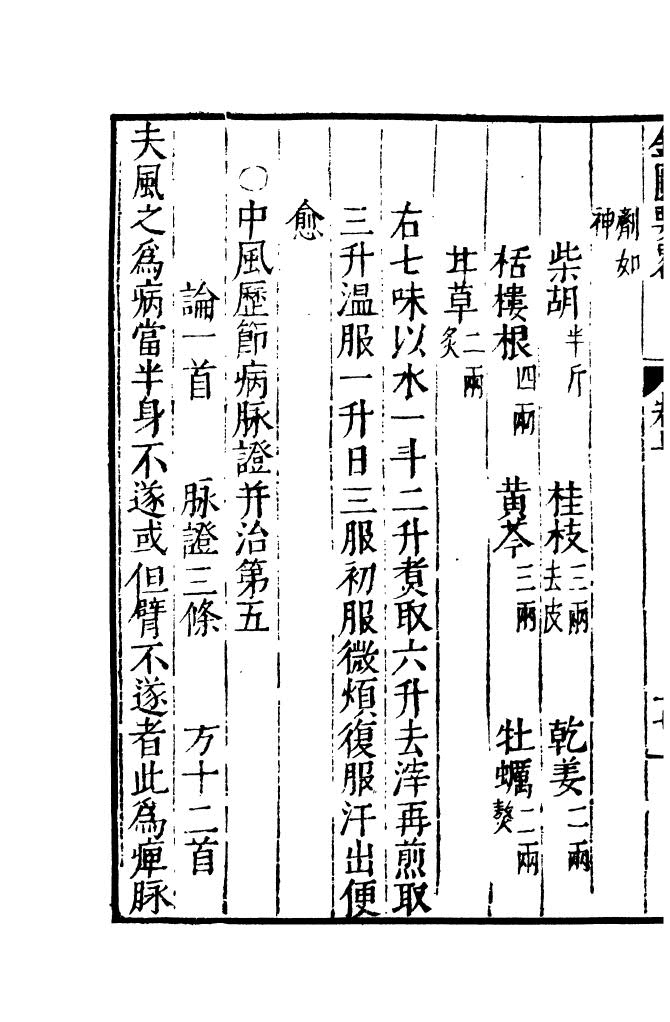 劑如
神
柴胡半斤 桂枝三兩去皮 乾姜二兩
栝樓根四兩 黄芩三兩 牡蠣二兩熬
甘草二兩炙
右七味以水一斗二升煮取六升去滓再煎取
三升温服一升日三服初服微煩復服汗出便
愈
○中風歷節病脉證并治第五
論一首 脉證三條 方十二首
夫風之爲病當半身不遂或但臂不遂者此爲痺脉